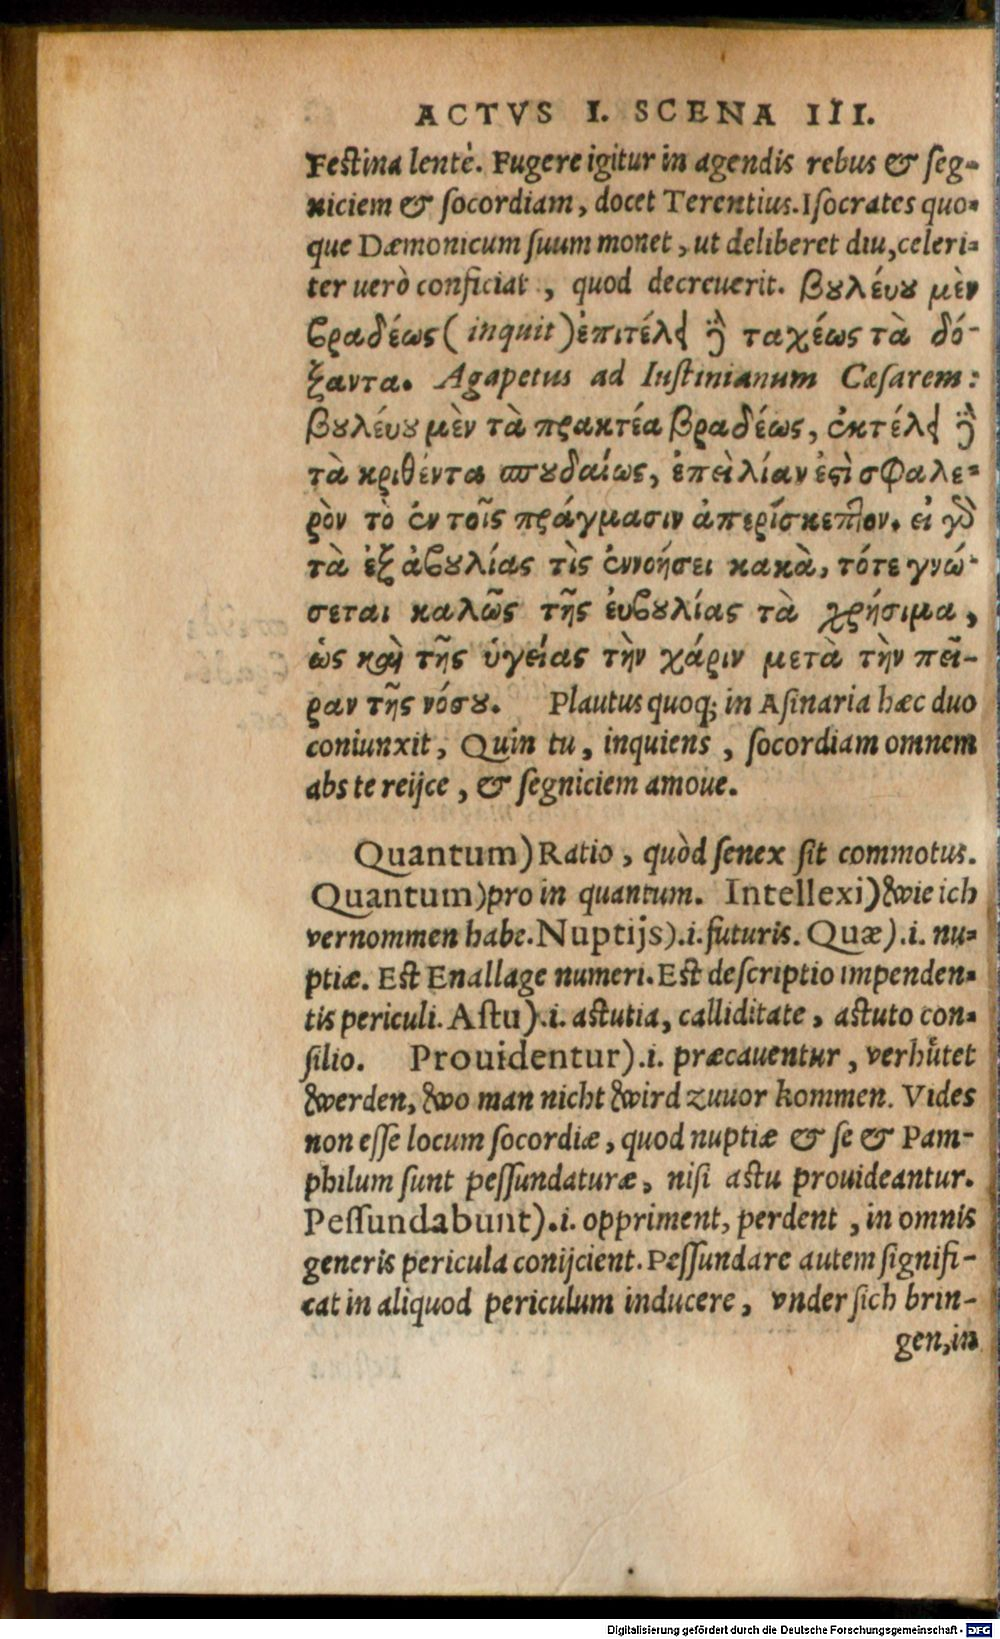 ACTVS I. SCENA III.
Festina lentè. Fugere igitur in agendis rebus & seg-
niciem & socordiam, docet Terentius. Isocrates quo-
que Dæmonicum suum monet, ut deliberet diu, celeri-
ter uerò conficiat, quod decreuerit. βȣλέυȣ μὲν
βραδέως (inquit) ἐπιτέλει δὲ ταχέως τὰ δό-
ξαντα. Agapetus ad Iustinianum Cæsarem:
βȣλέυȣ μὲν τὰ πρακτέα βραδέως, ἐκτέλει δὲ
τὰ κριθέντα σπȣδαίως, ἐπεὶ λίαν ἐστὶ σφαλε-
ρὸν τὸ ἐν τοῖς πράγμασιν ἀπερίσκεπτον. εἰ γὸ
τὰ ἐξ ἀβȣλίας τὶς ἐννοήσει κακὰ, τότε γνώ-
σεται καλῶς τῆς ἐυβȣλίας τὰ χρήσιμα,
ὡς καὶ τῆς ὑγείας τὴν χάριν μετὰ τὴν πεῖ-
ραν τῆς νόσȣ. Plautus quoq; in Asinaria hæc duo
coniunxit, Quin tu, inquiens, socordiam omnem
abs te reijce, & segniciem amoue.
Quantum) Ratio, quòd senex sit commotus.
Quantum) pro in quantum. Intellexi) wie ich
vernommen habe. Nuptijs) .i. futuris. Quæ) .i. nu-
ptiæ. Est Enallage numeri. Est descriptio impenden-
tis periculi. Astu) .i. astutia, calliditate, astuto con-
silio. Prouidentur) .i. præcauentur, verhütet
werden, wo man nicht wird zuuor kommen. Vides
non esse locum socordiæ, quod nuptiæ & se & Pam-
philum sunt pessundaturæ, nisi astu prouideantur.
Pessundabunt) .i. oppriment, perdent, in omnis
generis pericula conijcient. Pessundare autem signifi-
cat in aliquod periculum inducere, vnder sich brin-
gen, in
Digitalisierung gefördert durch die Deutsche Forschungsgemeinschaft - DFG